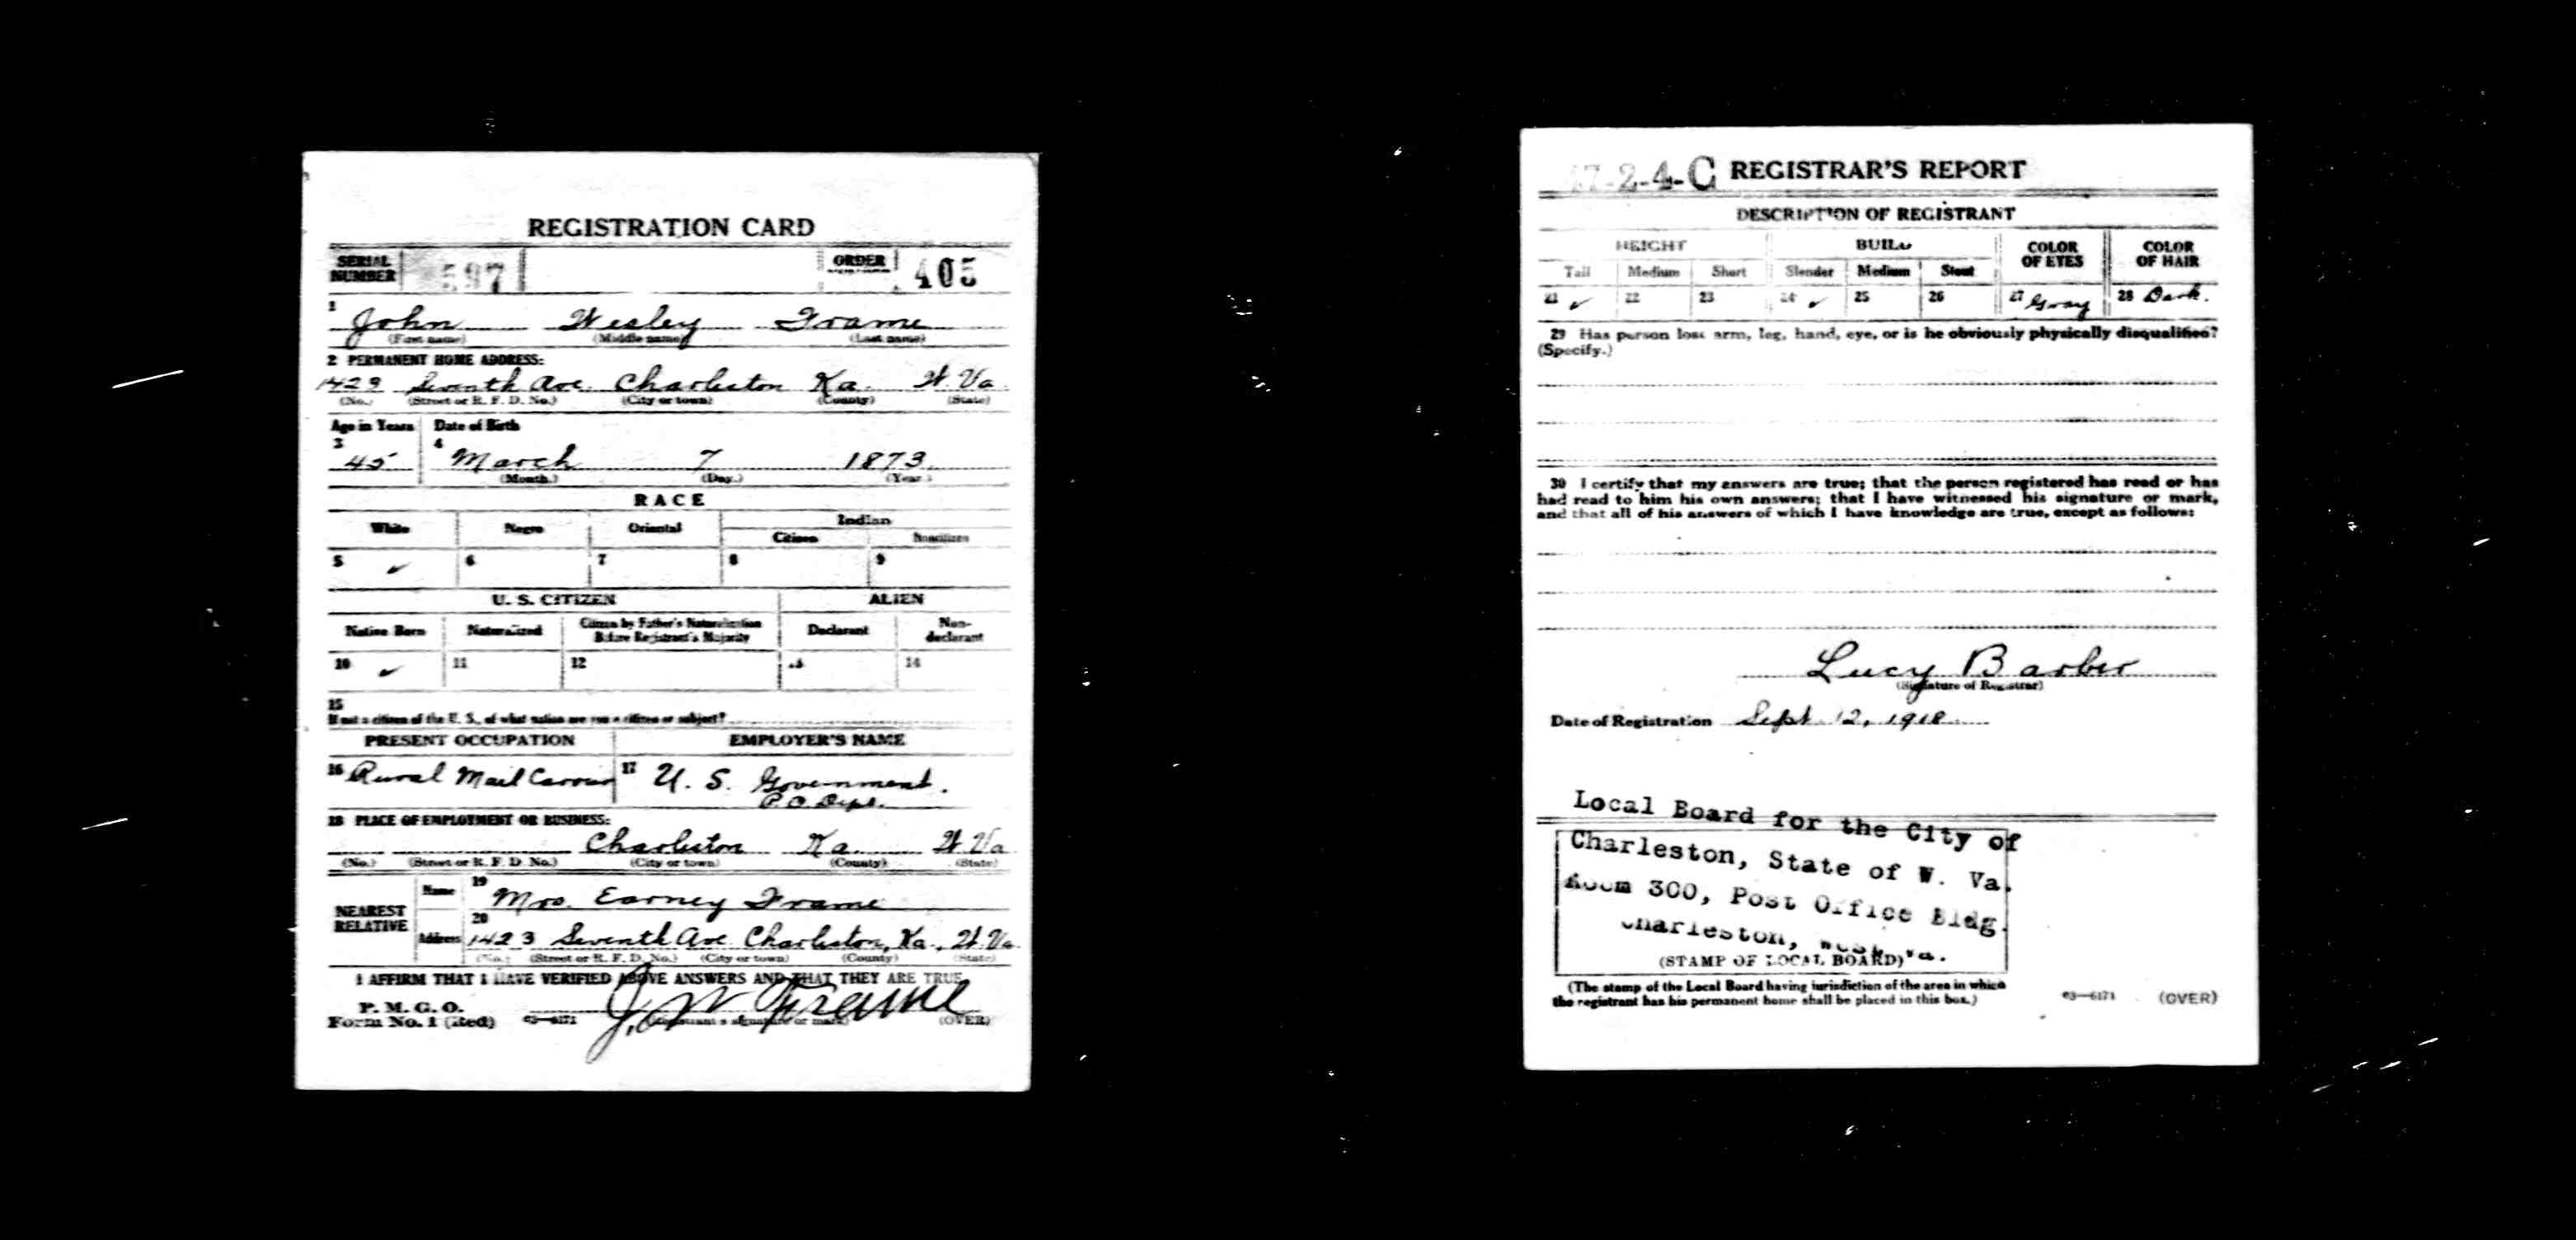 REGISTRATION CARD
SERIAL NUMBER 597 ORDER NUMBER 405
1 John Wesley Frame
(First name) (Middle name) (Last name)
2 PERMANENT HOME ADDRESS:
1423 Seventh Ave. Charleston Ka. W. Va.
(No.) (Street or R. F. D. No.) (City or town) (County) (State)
Age in Years Date of Birth
3 4
45 March 7 1873
(Month.) (Day.) (Year.)
RACE
White Negro Oriental Indian
Citizen Noncitizen
5 ✓ 6 7 8 9
U. S. CITIZEN ALIEN
Native Born Naturalized Citizen by Father's Naturalization Before Registrant's Majority Declarant Non-declarant
10 ✓ 11 12 13 14
15
If not a citizen of the U. S., of what nation are you a citizen or subject?
PRESENT OCCUPATION EMPLOYER'S NAME
16 Rural Mail Carrier 17 U. S. Government.
P. O. Dept.
18 PLACE OF EMPLOYMENT OR BUSINESS:
Charleston Ka. W. Va
(No.) (Street or R. F. D. No.) (City or town) (County) (State)
NEAREST RELATIVE
Name 19 Mrs. Earney Frame
Address 20 1423 Seventh Ave. Charleston, Ka., W. Va.
(No.) (Street or R. F. D. No.) (City or town) (County) (State)
I AFFIRM THAT I HAVE VERIFIED ABOVE ANSWERS AND THAT THEY ARE TRUE
P. M. G. O.
Form No. 1 (Red) 03—6171 J. W. Frame (OVER)
(Registrant's signature or mark)
2-4-C REGISTRAR'S REPORT
DESCRIPTION OF REGISTRANT
HEIGHT BUILD COLOR OF EYES COLOR OF HAIR
Tall Medium Short Slender Medium Stout
21 ✓ 22 23 24 ✓ 25 26 27 Gray 28 Dark.
29 Has person lost arm, leg, hand, eye, or is he obviously physically disqualified?
(Specify.)
30 I certify that my answers are true; that the person registered has read or has
had read to him his own answers; that I have witnessed his signature or mark,
and that all of his answers of which I have knowledge are true, except as follows:
Lucy Barber
(Signature of Registrar)
Date of Registration Sept. 12, 1918
Local Board for the City of
Charleston, State of W. Va.
Room 300, Post Office Bldg.
Charleston, West Va.
(STAMP OF LOCAL BOARD)
(The stamp of the Local Board having jurisdiction of the area in which
the registrant has his permanent home shall be placed in this box.)
03—6171 (OVER)